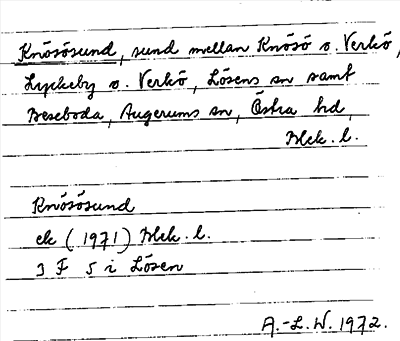 Knösösund, sund mellan Knösö o. Verkö,
Lyckeby o. Verkö, Lösens sn samt
Beseboda, Augerums sn, Östra hd,
Blek. l.
Knösösund
ek (1971) Blek. l.
3 F 5 i Lösen
A.-L. W. 1972.